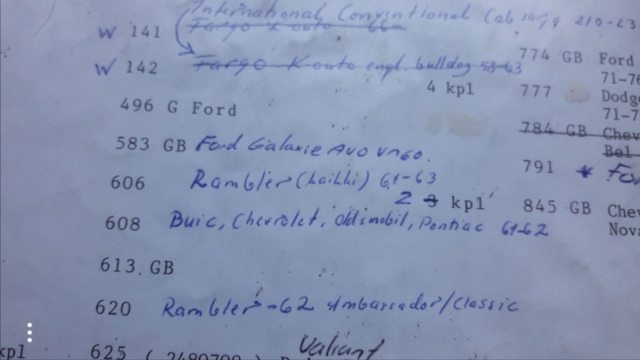 International Conventional Cab sarja 210-23
W 141 Fargo
W 142 Fargo K auto engl. bulldog 58-63
774 GB Ford
71-76
4 kpl
777 Dodg
71-7
496 G Ford
784 GB Chev
Bel
583 GB Ford Galaxie Avo vm60.
791 * Fo
606 Rambler (kaikki) 61-63
2 3 kpl
845 GB Chev
Nova
608 Buic, Chevrolet, Oldsmobil, Pontiac 61-62
613 GB
620 Rambler -62 Ambassador/Classic
kpl
625 ( Valiant